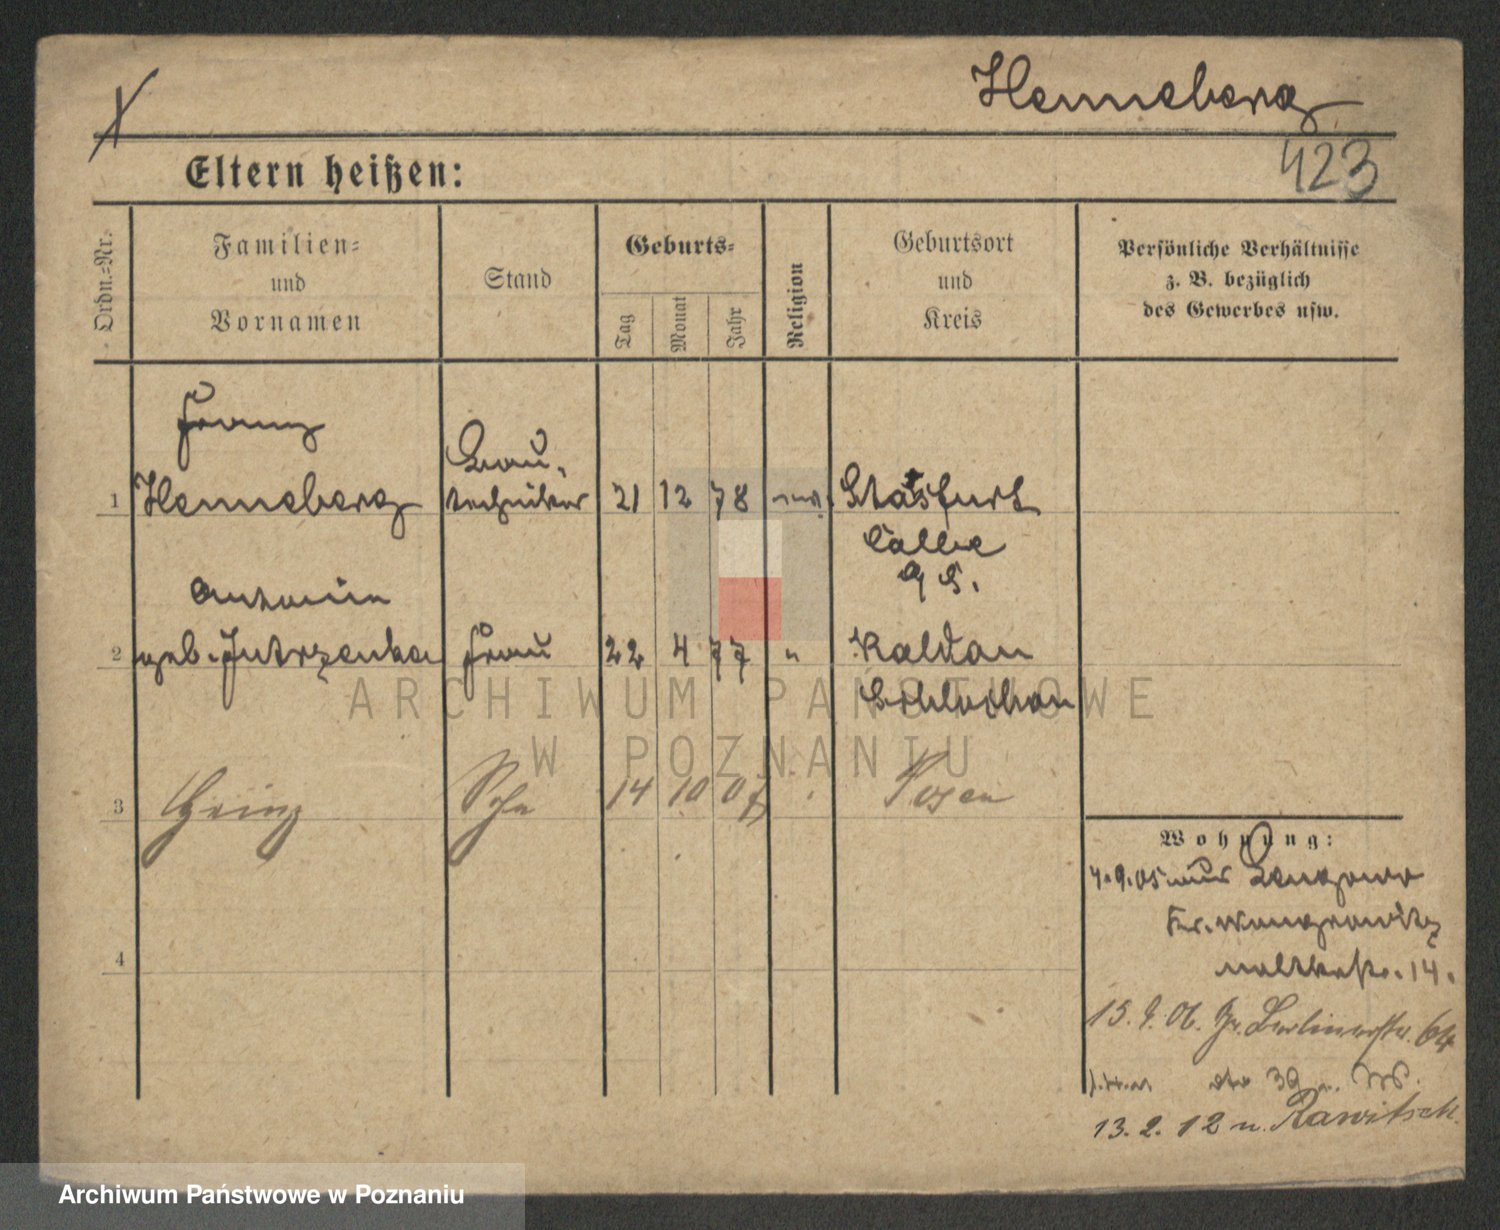 Henneberg
423
Eltern heißen:
Ordn.-Nr.
Familien-
und
Vornamen
Stand
Geburts-
Tag
Monat
Jahr
Religion
Geburtsort
und
Kreis
Persönliche Verhältnisse
z. B. bezüglich
des Gewerbes usw.
Franz
Bau-
1 Henneberg techniker 21 12 78 Stasfurt
Calbe
Antonie
2 geb. Jutrzenka Frau 22 4 77 " Kaldau
Schlochau
3 Heinz Sohn 14 10 07 Posen
4
Wohnung:
4.9.05 aus
Kr. Wongrowitz
14.
Gr. Berlinerstr. 64
39
13. 2. 12 n. Rawitsch.
ARCHIWUM PAŃSTWOWE
W POZNANIU
Archiwum Państwowe w Poznaniu